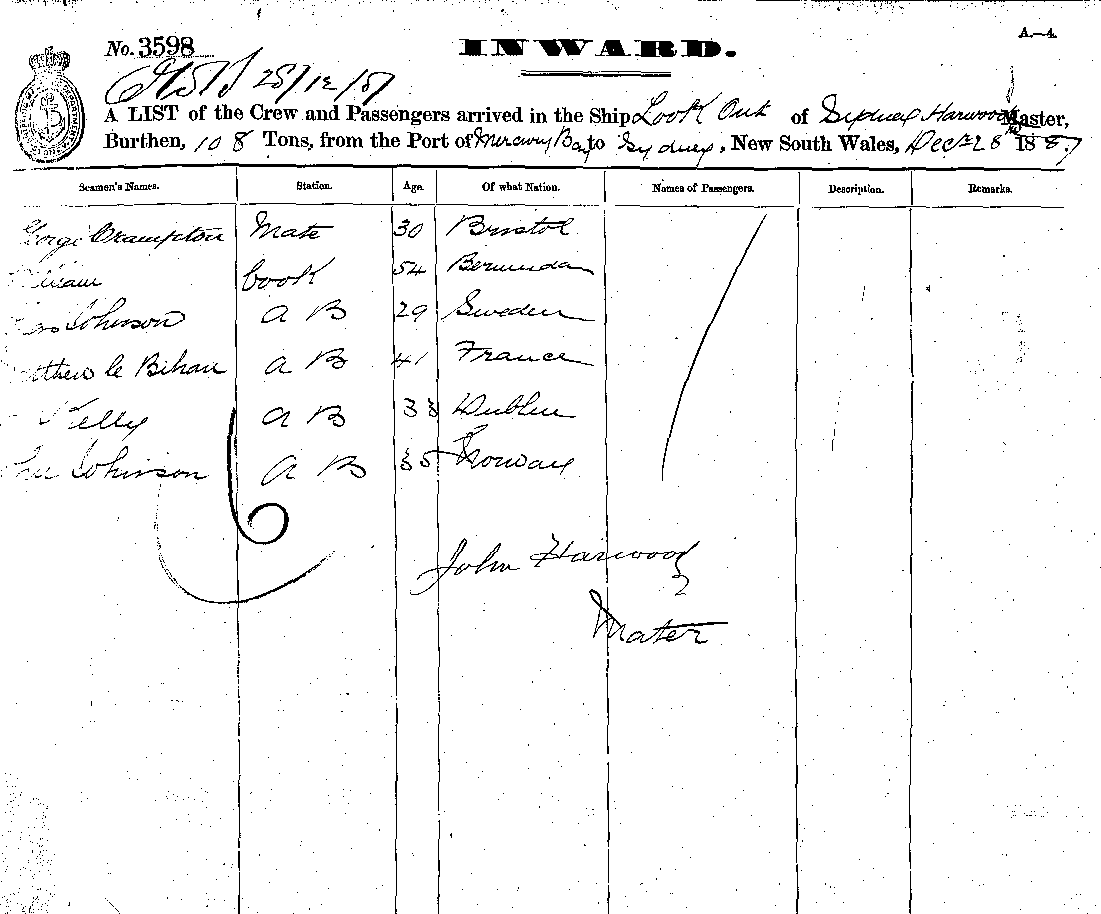 A.—4.
No. 3598
INWARD.
28/12/87
A LIST of the Crew and Passengers arrived in the Ship Look Out of Sydney Harwood Master,
Burthen, 108 Tons, from the Port of Mercury Bay to Sydney, New South Wales, Dec 28 1887
Seamen's Names. Station. Age. Of what Nation. Names of Passengers. Description. Remarks.
Crampton Mate 30 Bristol
Cook 54 Bermuda
Johnson A B 29 Sweden
le Bihan A B 41 France
Kelly A B 33 Dublin
Johnson A B 35 Norway
6
John Harwood
Mater